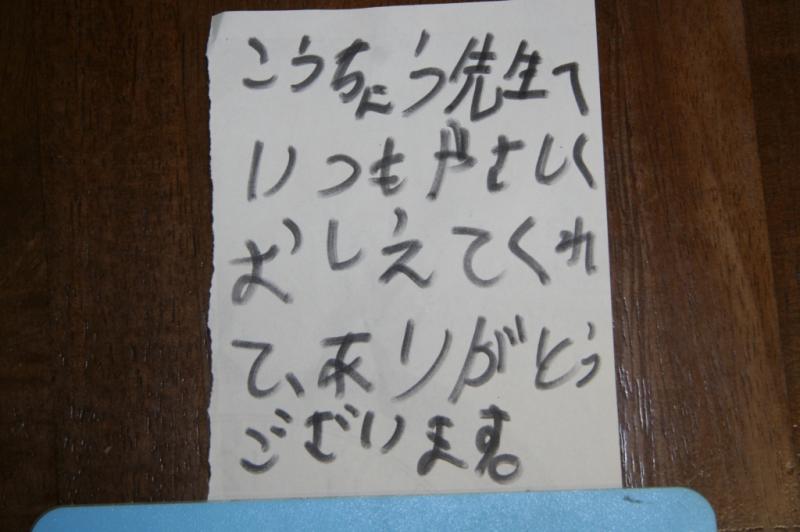 こうちょう先生へ
いつもやさしく
おしえてくれ
て、ありがとう
ございます。